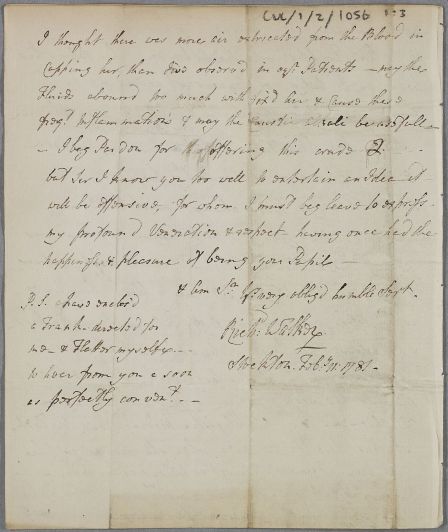 CUL/1/2/1056
I thought there was more air extracted from the Blood in
Cupping her, than I've observ'd in oth.r Patients — may the
Fluids abound too much with fix'd & cause these
freq.t Inflammations & may the Caustic be usefull —
— I beg Pardon for offering this crude Q.
but Sir I know you too well to entertain an Idea it
will be offensive for whom I must beg leave to express
my profound Veneration & respect having once had the
happiness & pleasure of being your Pupil —
& am S.r Y.r very oblig'd humble Serv.t
Rich.d Walker
Stockton Feb.y 1781 —
P.S. I have enclos'd
a Frank directed for
me — & flatter myself —
to hear from you as soon
as perfectly conven.t — —